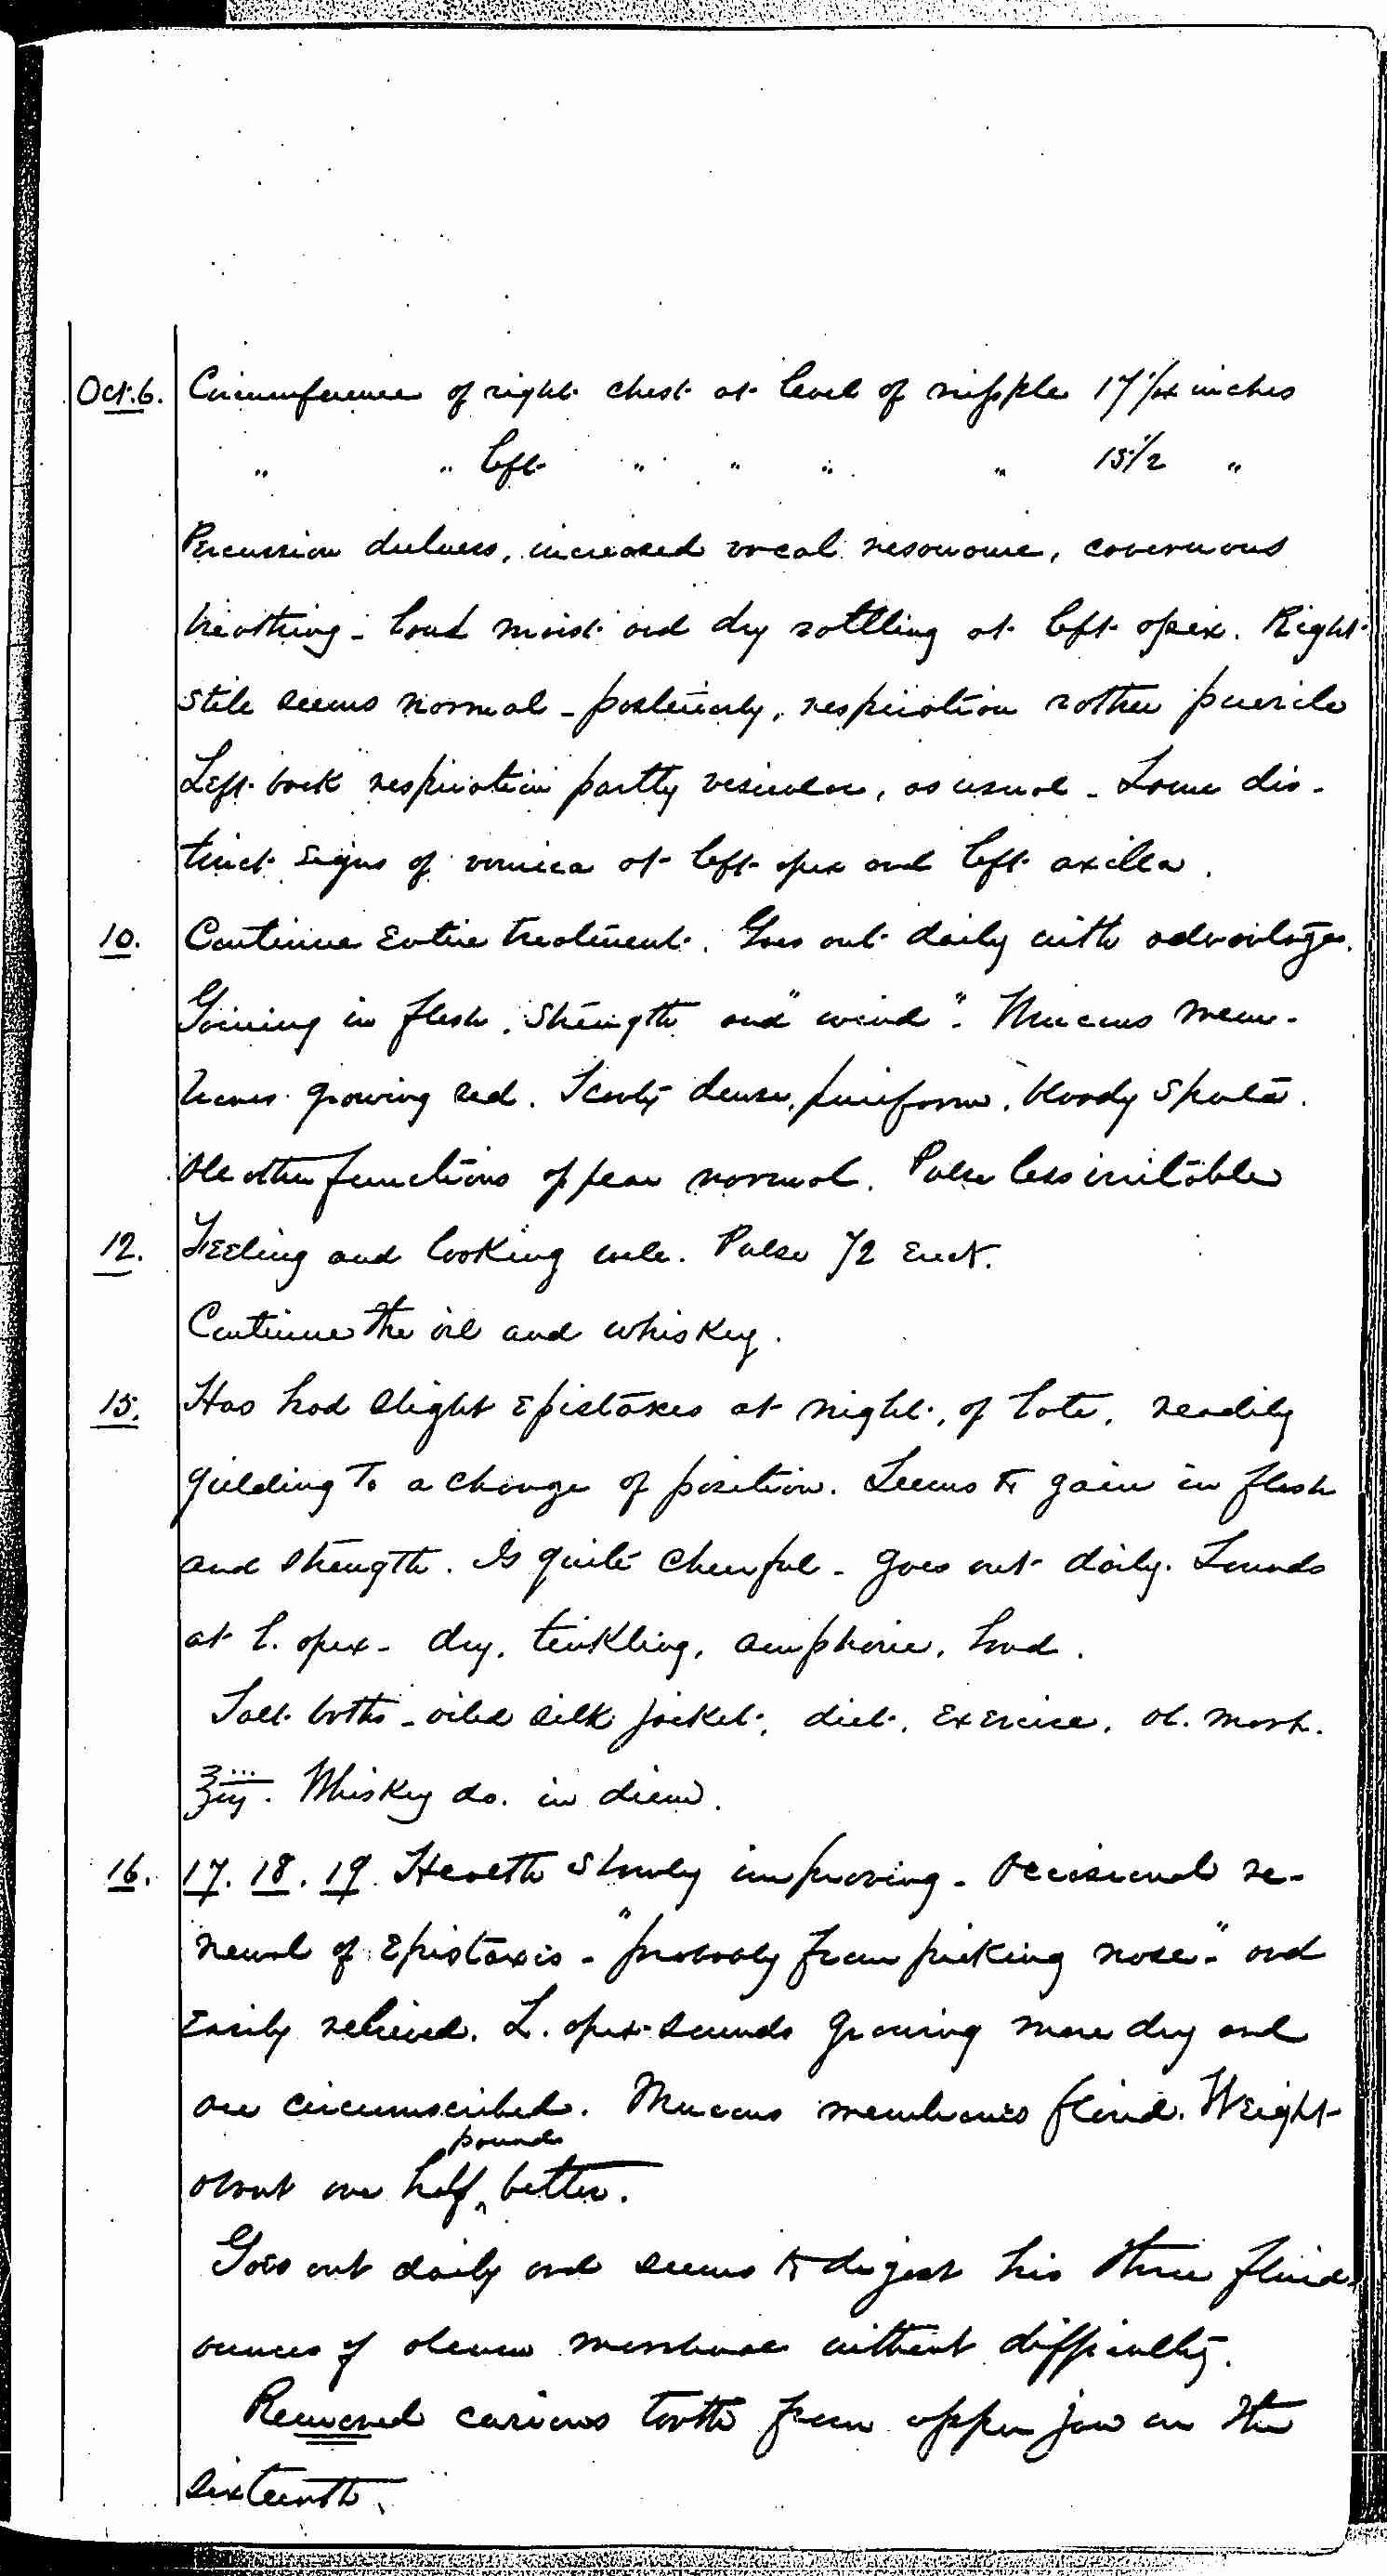 Oct. 6. Circumference of right chest at level of nipple 17 1/4 inches
" " left " " " " 15 1/2 "
Percussion dulness, increased vocal resonance, cavernous
breathing - loud moist and dry rattling at left apex. Right
side seems normal - posteriorly, respiration rather puerile
Left back respiration partly vesicular, as usual - Some dis-
tinct signs of vomica at left apex and left axilla.
10. Continue Entire treatment. Goes out daily with advantage.
Gaining in flesh, strength and "wind". Mucous mem-
branes growing red. Scanty dense, puriform, bloody sputa.
All other functions appear normal. Pulse less irritable
12. Feeling and looking well. Pulse 72 Erect.
Continue the oil and whiskey.
15. Has had slight Epistaxis at night, of late, readily
yielding to a change of position. Seems to gain in flesh
and strength. Is quite cheerful - goes out daily. Sounds
at l. apex - dry, tinkling, amphoric, loud.
Salt baths - oiled silk jacket, diet, Exercise, ol. morh.
℥iij. Whiskey do. in diem.
16. 17. 18. 19. Health slowly improving - Occasional re-
newal of Epistaxis - "probably from picking nose" - and
Easily relieved. L. apex sounds growing more dry and
are circumscribed. Mucous membranes florid. Weight
about one half pound better.
Goes out daily and seems to digest his three fluid
ounces of oleum morrhuae without difficulty.
Removed carious tooth from upper jaw on the
sixteenth.